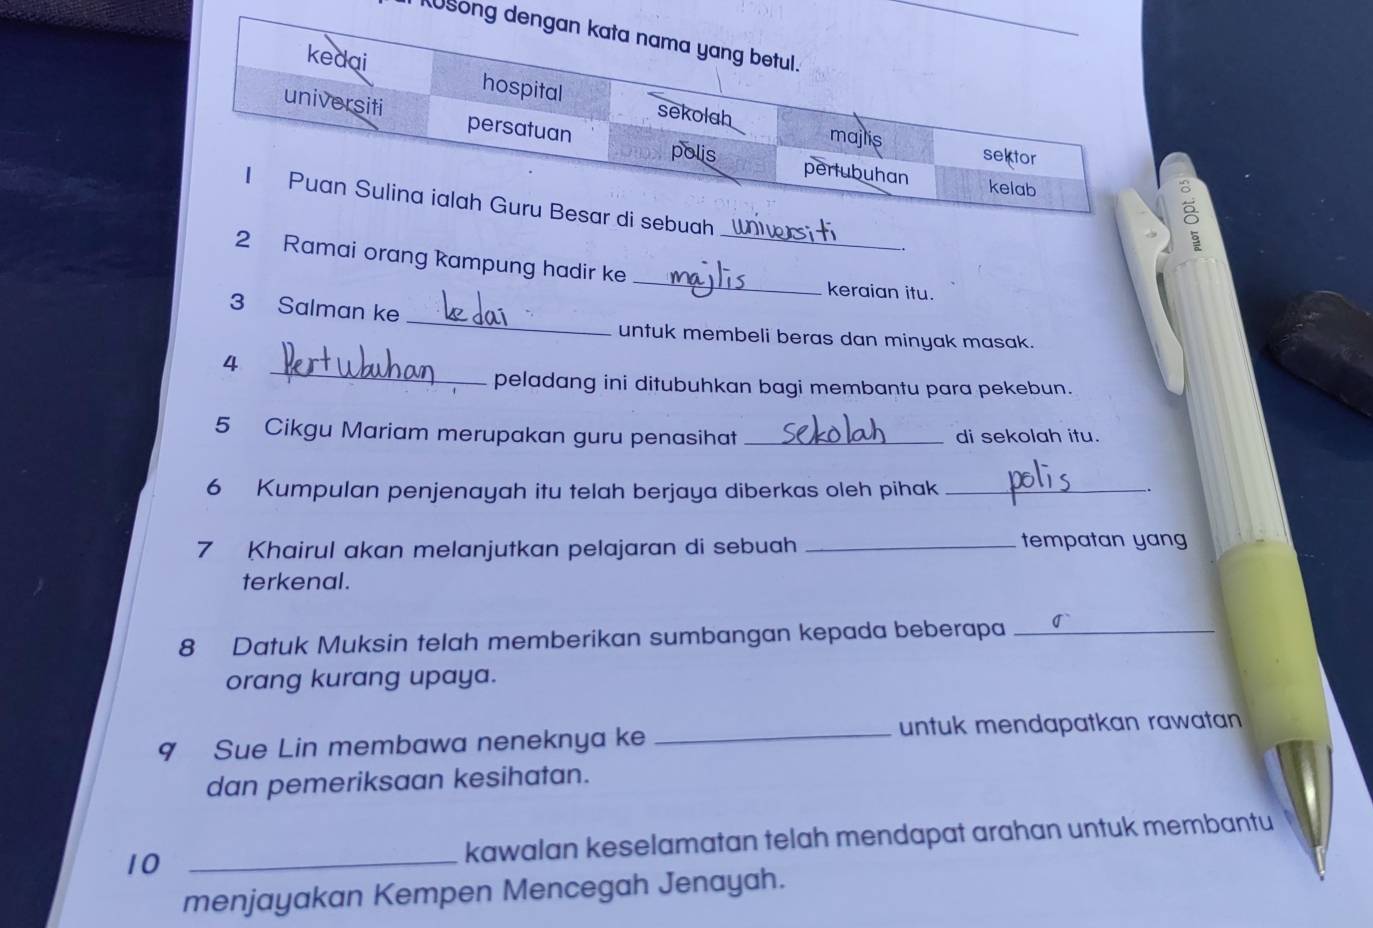 Kosong dengan kata nama yang betul.
kedai hospital sekolah majlis sektor
universiti persatuan polis pertubuhan kelab
1 Puan Sulina ialah Guru Besar di sebuah universiti.
2 Ramai orang kampung hadir ke majlis keraian itu.
3 Salman ke kedai untuk membeli beras dan minyak masak.
4 Pertubuhan peladang ini ditubuhkan bagi membantu para pekebun.
5 Cikgu Mariam merupakan guru penasihat sekolah di sekolah itu.
6 Kumpulan penjenayah itu telah berjaya diberkas oleh pihak polis.
7 Khairul akan melanjutkan pelajaran di sebuah ____ tempatan yang
terkenal.
8 Datuk Muksin telah memberikan sumbangan kepada beberapa ____
orang kurang upaya.
9 Sue Lin membawa neneknya ke ____ untuk mendapatkan rawatan
dan pemeriksaan kesihatan.
10 ____ kawalan keselamatan telah mendapat arahan untuk membantu
menjayakan Kempen Mencegah Jenayah.
PILOT Opt. 0.5